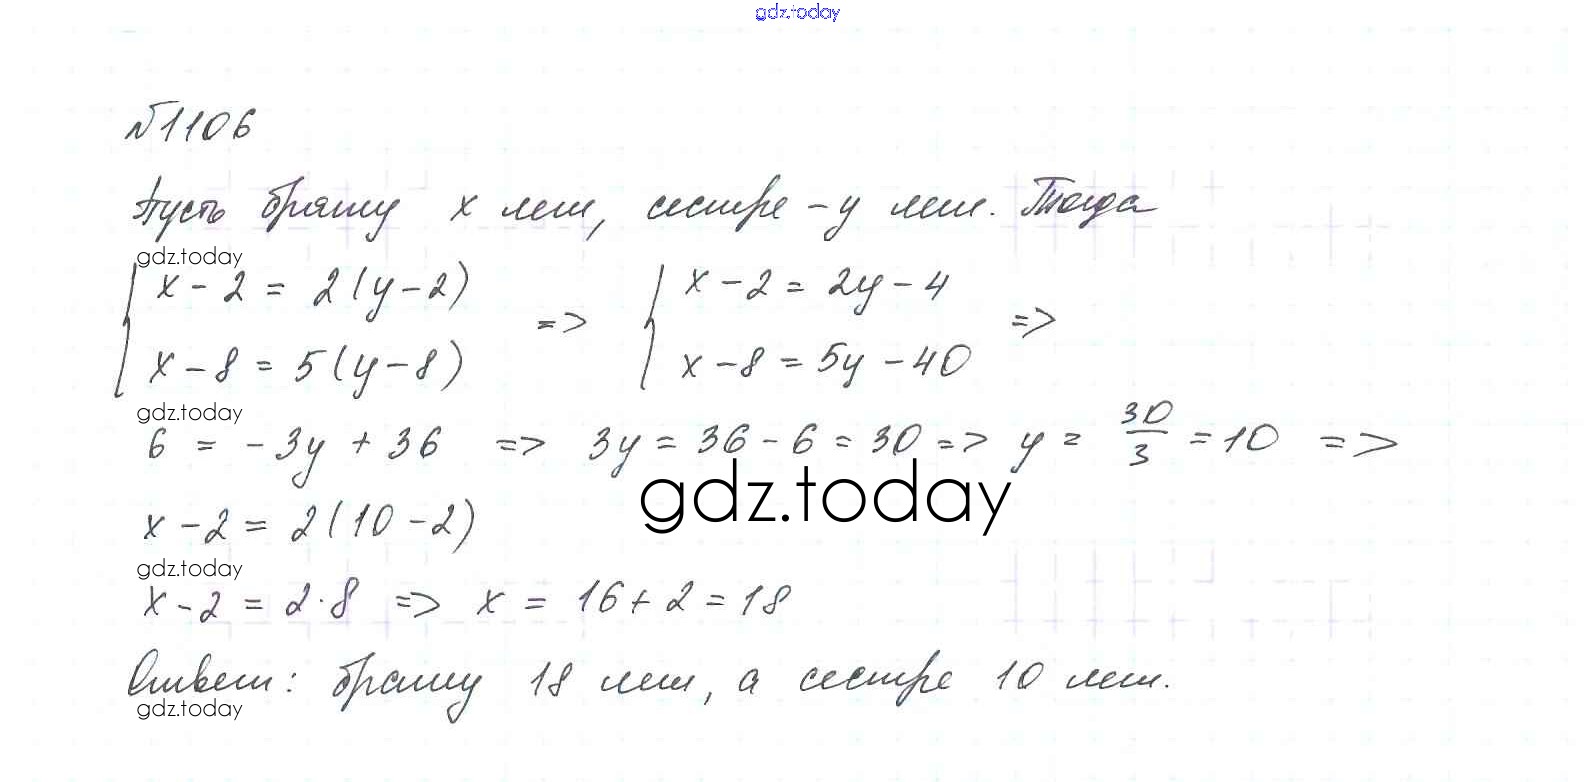 gdz.today
№1106
Пусть брату x лет, сестре - y лет. Тогда
gdz.today
{ x - 2 = 2(y - 2) => { x - 2 = 2y - 4 =>
x - 8 = 5(y - 8) x - 8 = 5y - 40
gdz.today
6 = - 3y + 36 => 3y = 36 - 6 = 30 => y = 30/3 = 10 =>
gdz.today
x - 2 = 2(10 - 2)
gdz.today
x - 2 = 2·8 => x = 16 + 2 = 18
Ответ: брату 18 лет, а сестре 10 лет.
gdz.today